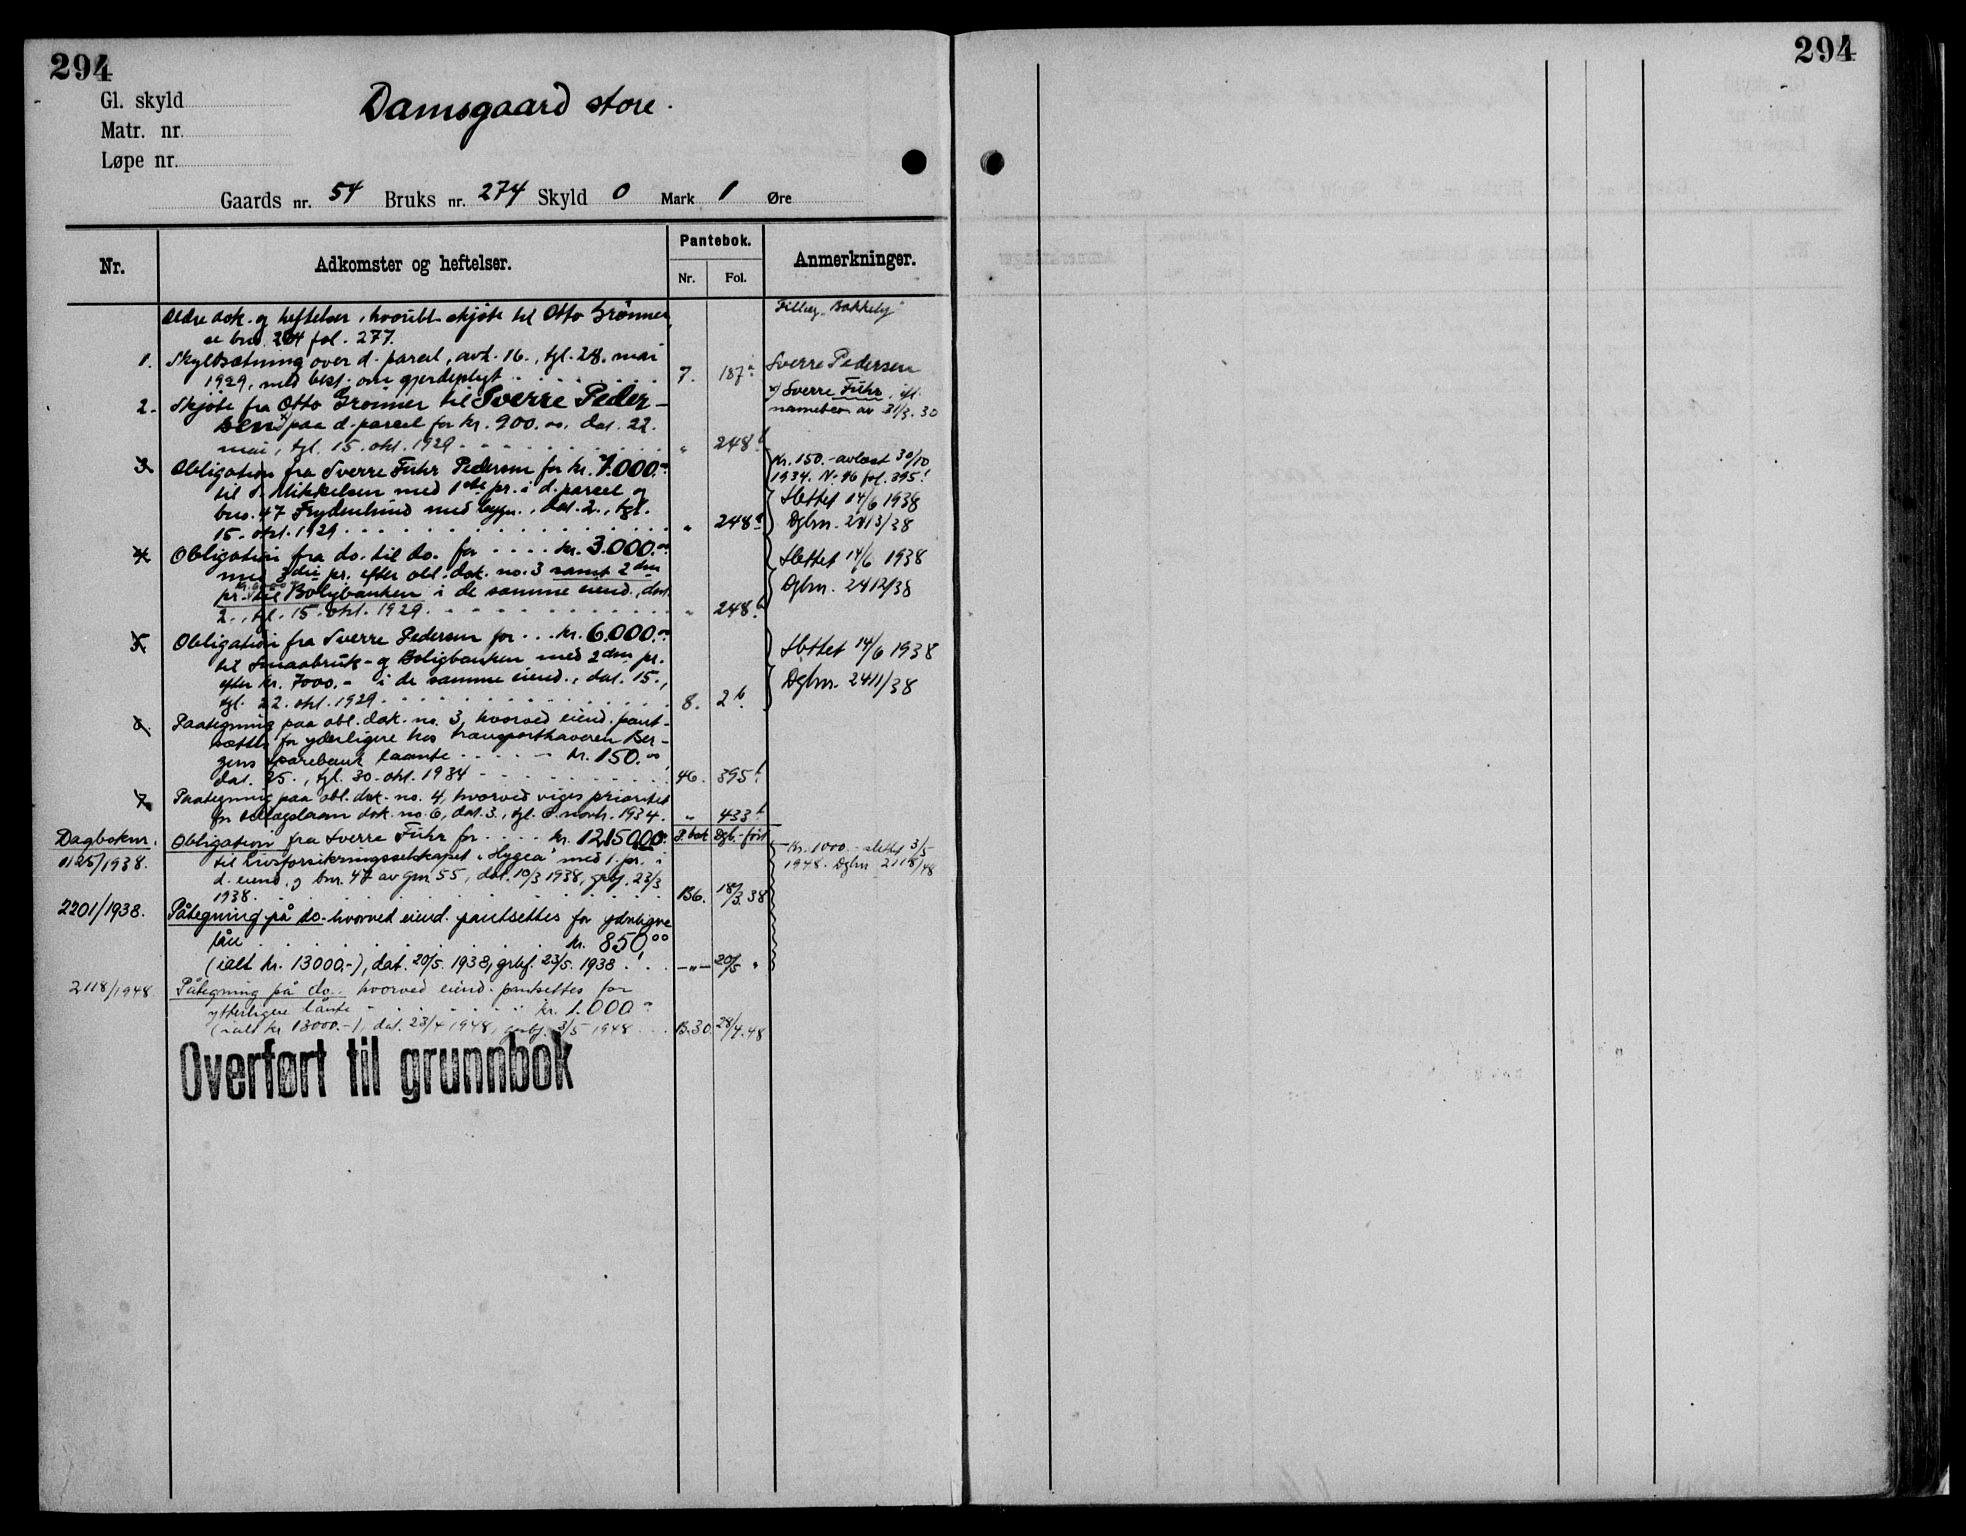 294
294
Gl. skyld
Damsgaard store.
Matr. nr.
Løpe nr.
Gaards nr. 54 Bruks nr. 274 Skyld 0 Mark 1 Øre
Nr.
Adkomster og heftelser.
Pantebok.
Nr. Fol.
Anmerkninger.
Ældre dok. og heftelser, hvoribl. skjøte til Otto Grønner,
se bno. 204 fol. 277.
Tillæg "Bakkely"
1. Skyldsætning over d. parcel, avh. 16., tgl. 28. mai
1929, med best. om gjerdepligt . . . . 7. 187 a
Sverre Pedersen
x) Sverre Fuhr, ifl.
navnebev. av 31/3. 30
2. Skjøte fra Otto Grønner til Sverre Peder-
sen x) paa d. parcel for kr. 900.00, dat. 22.
mai, tgl. 15. okt. 1929 . . . . " 248 b
3. Obligation fra Sverre Fuhr Pedersen for kr. 7.000.00
til S. Mikkelsen med 1ste pr. i d. parcel og
bno. 47 Frydenlund med bygn., dat. 2., tgl.
15. okt. 1929 . . . . " 248 b
Kr. 150.- avlæst 30/10
1934. No. 46 fol. 395 b
Slettet 14/6 1938
Dgbnr. 2413/38
4. Obligation fra do. til do. for . . . . kr. 3.000.00
med 3die pr. efter obl. dok. no. 3 samt 2den
pr. kr. 6000 til Boligbanken i de samme eiend., dat.
2., tgl. 15. okt. 1929 . . . . " 248 b
Slettet 14/6 1938
Dgbnr. 2412/38
5. Obligation fra Sverre Pedersen for . . . kr. 6.000.00
til Smaabruk- og Boligbanken med 2den pr.
efter kr. 7000.- i de samme eiend., dat. 15.,
tgl. 22. okt. 1929 . . . . 8. 2 b
Slettet 14/6 1938
Dgbnr. 2411/38
6. Paategning paa obl. dok. no. 3, hvorved eiend. pant-
sættes for yderligere hos transporthaveren Ber-
gens Sparebank laante . . . . kr. 150.00,
dat. 25., tgl. 30. okt. 1934 . . . . 46. 395 b
7. Paategning paa obl. dok. no. 4, hvorved viges prioritet
for tillægslaan dok. no. 6, dat. 3., tgl. 6. novbr. 1934. " 433 b
Dagboknr. Obligation fra Sverre Fuhr for . . . . kr. 12150.00 P.bok Dgb.-ført
1125/1938. til Livsforsikringsselskapet "Hygea" med 1. pr. i
d. eiend. og bnr. 47 av gnr 55, dat. 10/3 1938, grbf. 23/3
1938. . . . . B6. 18/3. 38
Kr. 1000.- slettet 3/5
1948. Dgbnr 2118/48
2201/1938. Påtegning på do. hvorved eiend. pantsettes for yderligere
lån . . . . kr. 850 00
(ialt kr. 13000.-), dat. 20/5. 1938, grbf. 23/5. 1938 . . . -"- 20/5 "
2118/1948. Påtegning på do. hvorved eiend. pantsettes for
ytterligere lånte . . . . kr. 1.000 00
(ialt kr. 13000.-), dat. 23/4 1948, grbf. 3/5 1948 . . . B.30. 28/4. 48
Overført til grunnbok